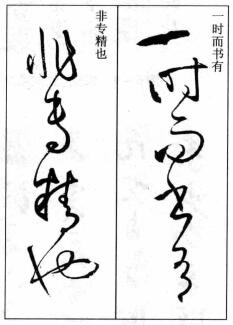 一时而书有
一时而书有
非专精也
非专精也